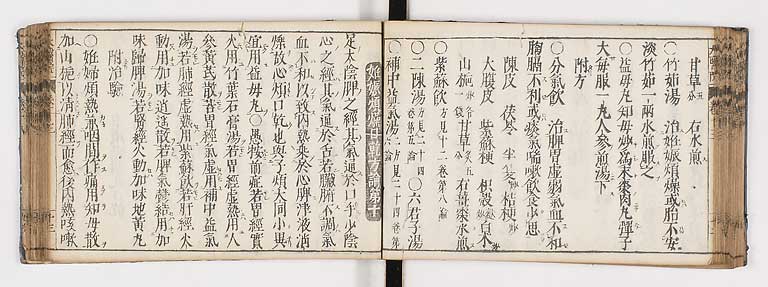 甘草五分 右水煎
○竹茹湯 治妊娠煩燥或胎不安
淡竹茹一兩水煎服之
○益母丸 知母炒為末棗肉丸彈子
大每服一丸人參煎湯下
附方
○分氣飲 治脾胃虛弱氣血不和
胸膈不利或痰氣喘嗽飲食少思
陳皮 茯苓 半夏 桔梗
大腹皮 紫蘇梗 枳殼 白朮
山梔 甘草 右薑棗水煎
○紫蘇飲 方見十二卷第八論
○二陳湯 方見二十四卷第五論 ○六君子湯
○補中益氣湯 二方見二十四卷第
妊娠煩躁口乾方論第十
足太陰脾之經其氣通於口手少陰
心之經其氣通於舌若臟腑不調氣
血不和以致內熱乘於心脾津液消
燥故心煩口乾也與子煩大同小異
宜用益母丸○愚按前症若胃經實
火用竹葉石膏湯若胃經虛熱用人
參黃芪散若胃經氣虛用補中益氣
湯若肺經虛熱用紫蘇飲若肝經火
動用加味逍遙散若脾氣鬱結用加
味歸脾湯若腎經火動用加味地黃丸
附治驗
○妊婦煩熱兼咽間作痛用知母散
加山梔以清肺經而愈後內熱咳嗽